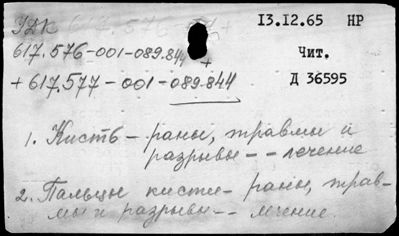 УДК 617.576 +
13.12.65 НР
617.576-001-089.844 +
Чит.
+ 617.577-001-089.844
Д 36595
1. Кисть - раны, травмы и
разрывы -- лечение
2. Пальцы кисти - раны, трав-
мы и разрывы -- лечение.